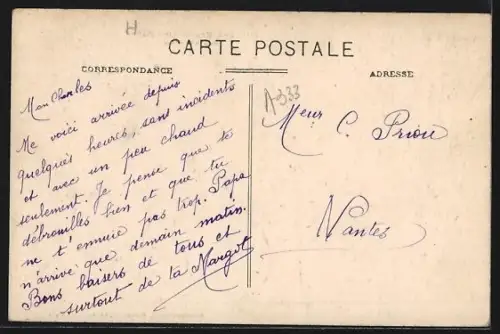 H
CARTE POSTALE
CORRESPONDANCE
ADRESSE
Mon Charles
Me voici arrivée depuis
quelques heures, sans incidents
et avec un peu chaud
seulement. Je pense que te
débrouilles bien et que tu
ne t'ennuie pas trop. Papa
n'arrive que demain matin.
Bons baisers de tous et
surtout de ta Margot
A-333
Meur C. Priou
Nantes